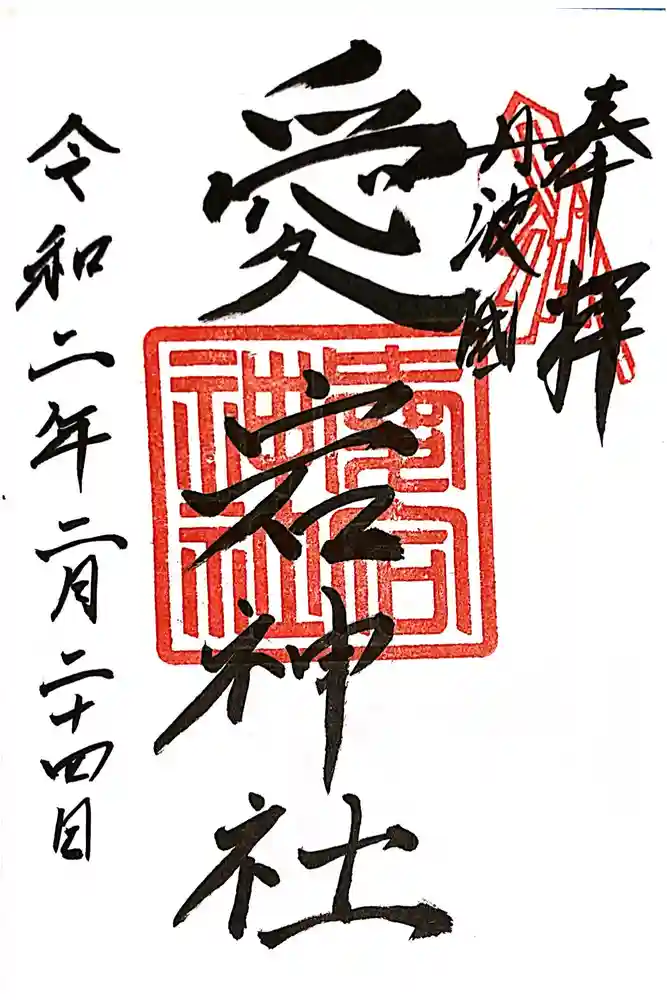 奉拝
丹波國
愛宕神社
愛宕
神社
令和二年二月二十四日